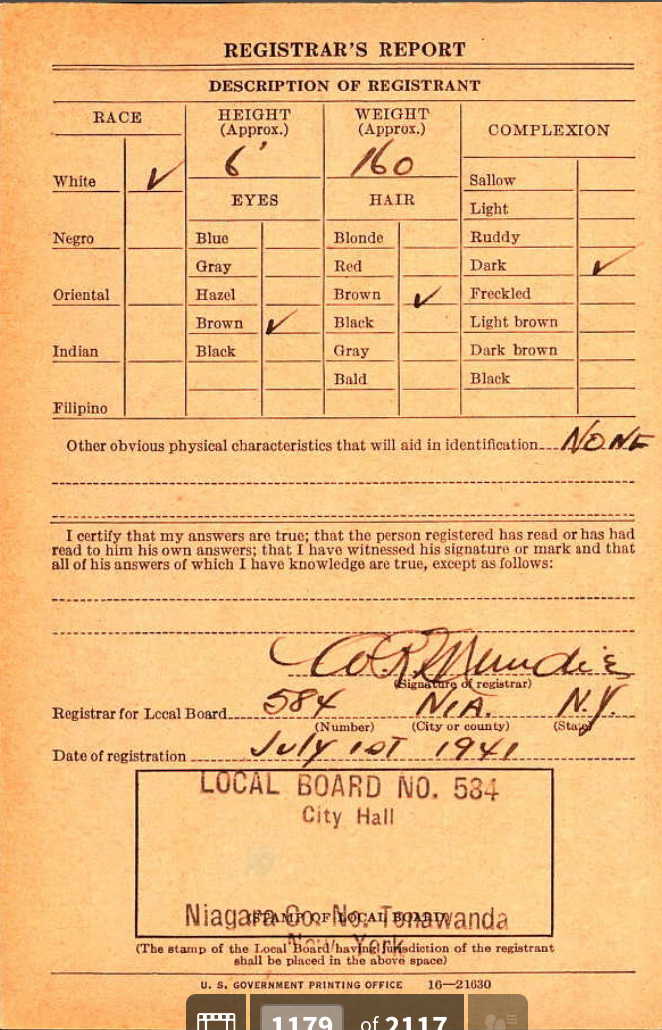 REGISTRAR'S REPORT
DESCRIPTION OF REGISTRANT
RACE
HEIGHT
(Approx.)
WEIGHT
(Approx.)
COMPLEXION
6'
160
White ✓
Sallow
EYES
HAIR
Light
Negro
Blue
Blonde
Ruddy
Gray
Red
Dark ✓
Oriental
Hazel
Brown ✓
Freckled
Brown ✓
Black
Light brown
Indian
Black
Gray
Dark brown
Bald
Black
Filipino
Other obvious physical characteristics that will aid in identification NONE
I certify that my answers are true; that the person registered has read or has had
read to him his own answers; that I have witnessed his signature or mark and that
all of his answers of which I have knowledge are true, except as follows:
(Signature of registrar)
Registrar for Local Board 584 NIA. N.Y.
(Number) (City or county) (State)
Date of registration JULY 1ST 1941
LOCAL BOARD NO. 584
City Hall
Niagara Co. No. Tonawanda
(STAMP OF LOCAL BOARD)
New York
(The stamp of the Local Board having jurisdiction of the registrant
shall be placed in the above space)
U. S. GOVERNMENT PRINTING OFFICE 16—21630
1179 of 2117